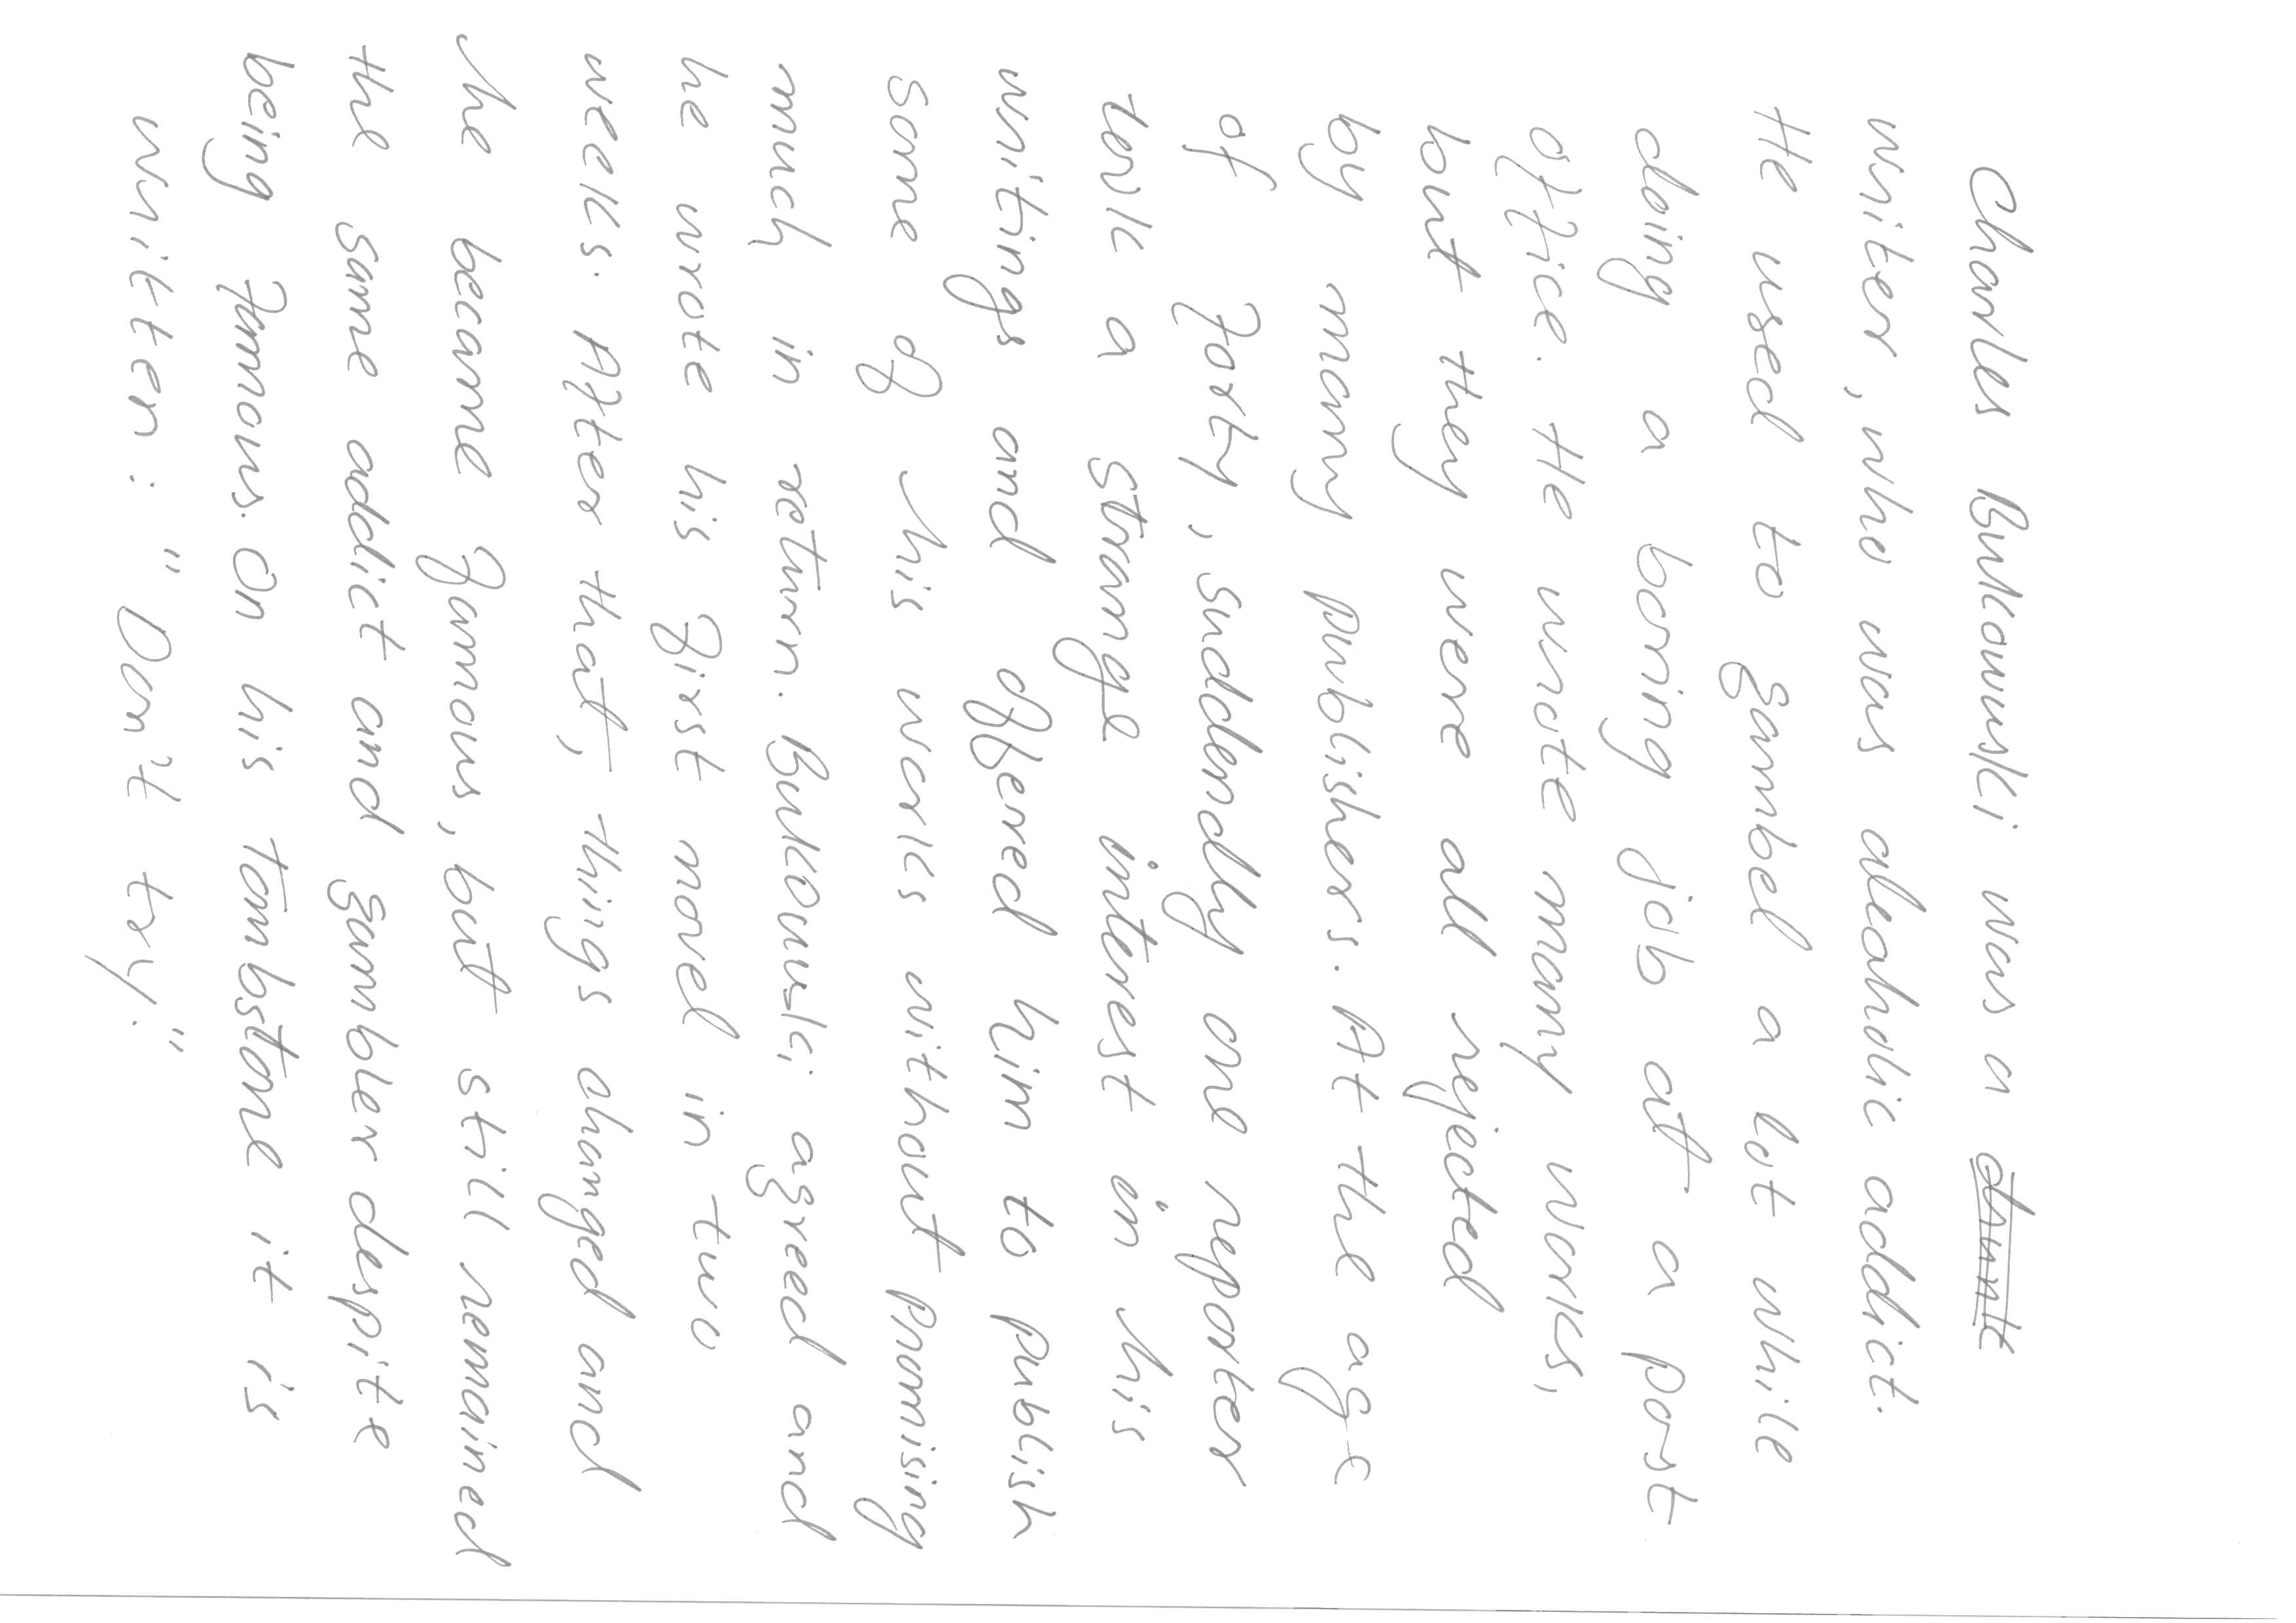 Charles Bukowuski was a drunk
writer, who was alcoholic addict.
He used to gambel a lot while
doing a boring job at a post
office. He wrote many works,
but they were all rejected
by many publishers. At the age
of forty, suddendly one reporter
took a strange interest in his
writings and offered him to publish
some of his works without promising
much in return. Bukowuski agreed and
he wrote his first novel in two
weeks. After that, things changed and
he became famous, but still remained
the same addict and gambler despite
being famous. On his tombstone it is
written: "Don't try."